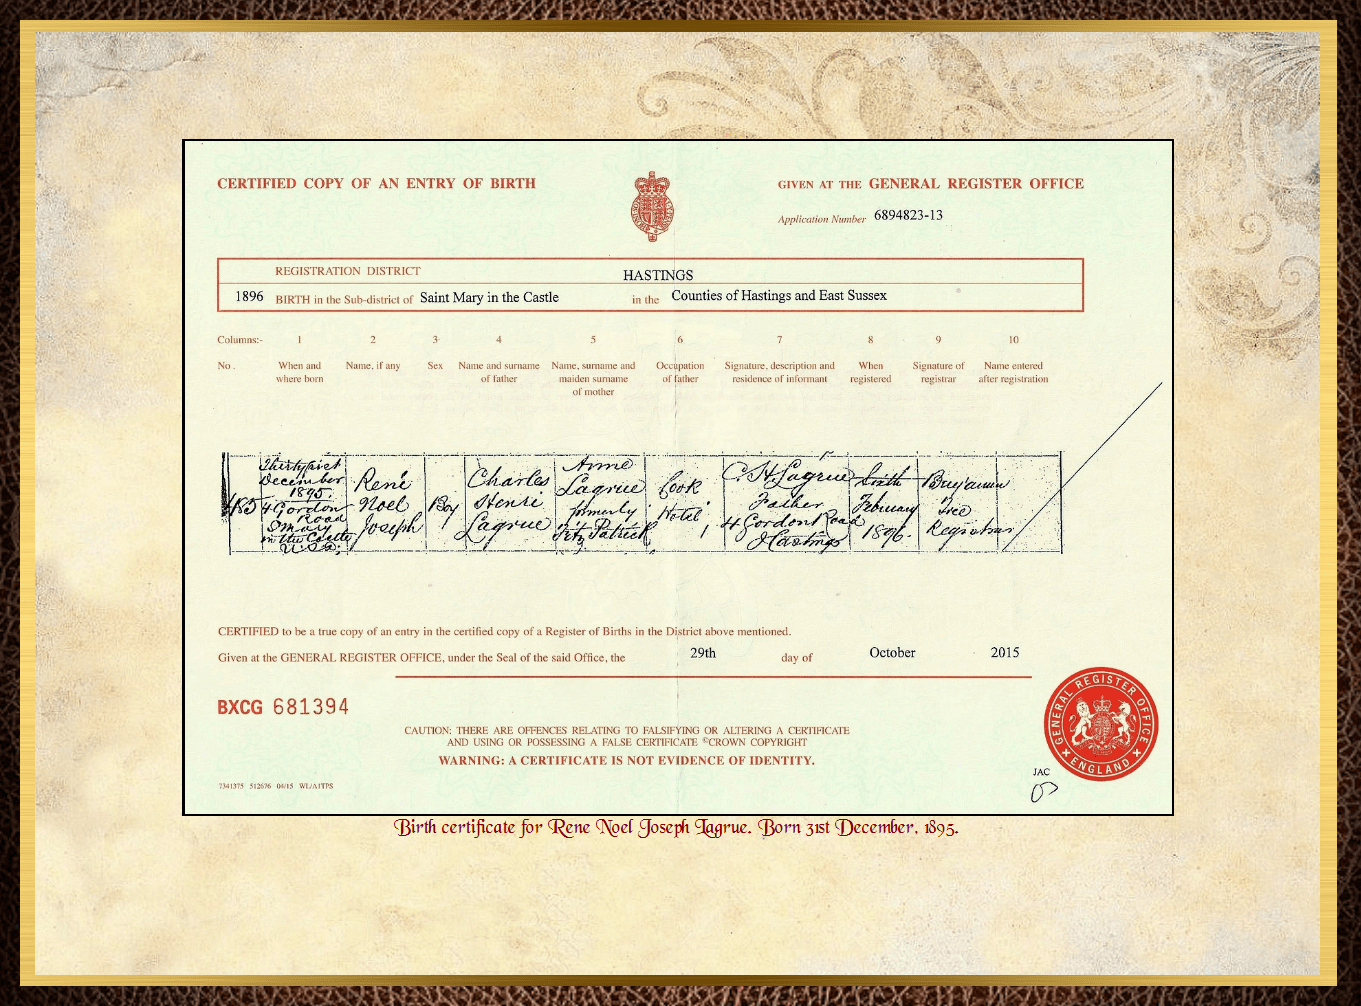 CERTIFIED COPY OF AN ENTRY OF BIRTH
GIVEN AT THE GENERAL REGISTER OFFICE
Application Number 6894823-13
REGISTRATION DISTRICT HASTINGS
1896 BIRTH in the Sub-district of Saint Mary in the Castle in the Counties of Hastings and East Sussex
Columns:- 1 2 3 4 5 6 7 8 9 10
No. When and Name, if any Sex Name and surname Name, surname and Occupation Signature, description and When Signature of Name entered
where born of father maiden surname of father residence of informant registered registrar after registration
of mother
485
Thirty first
December
1895.
4 Gordon
Road
S Mary
in the Castle
René
Noel
Joseph
Boy
Charles
Henri
Lagrue
Anne
Lagrue
formerly
Fitz Patrick
Cook
Hotel
C. H. Lagrue
Father
4 Gordon Road
Hastings
Sixth
February
1896.
Benjamin
Tree
Registrar
CERTIFIED to be a true copy of an entry in the certified copy of a Register of Births in the District above mentioned.
Given at the GENERAL REGISTER OFFICE, under the Seal of the said Office, the 29th day of October 2015
BXCG 681394
CAUTION: THERE ARE OFFENCES RELATING TO FALSIFYING OR ALTERING A CERTIFICATE
AND USING OR POSSESSING A FALSE CERTIFICATE ©CROWN COPYRIGHT
WARNING: A CERTIFICATE IS NOT EVIDENCE OF IDENTITY.
GENERAL REGISTER OFFICE
ENGLAND
JAC
7341375 512676 04/15 WL/AITPS
Birth certificate for Rene Noel Joseph Lagrue. Born 31st December, 1895.